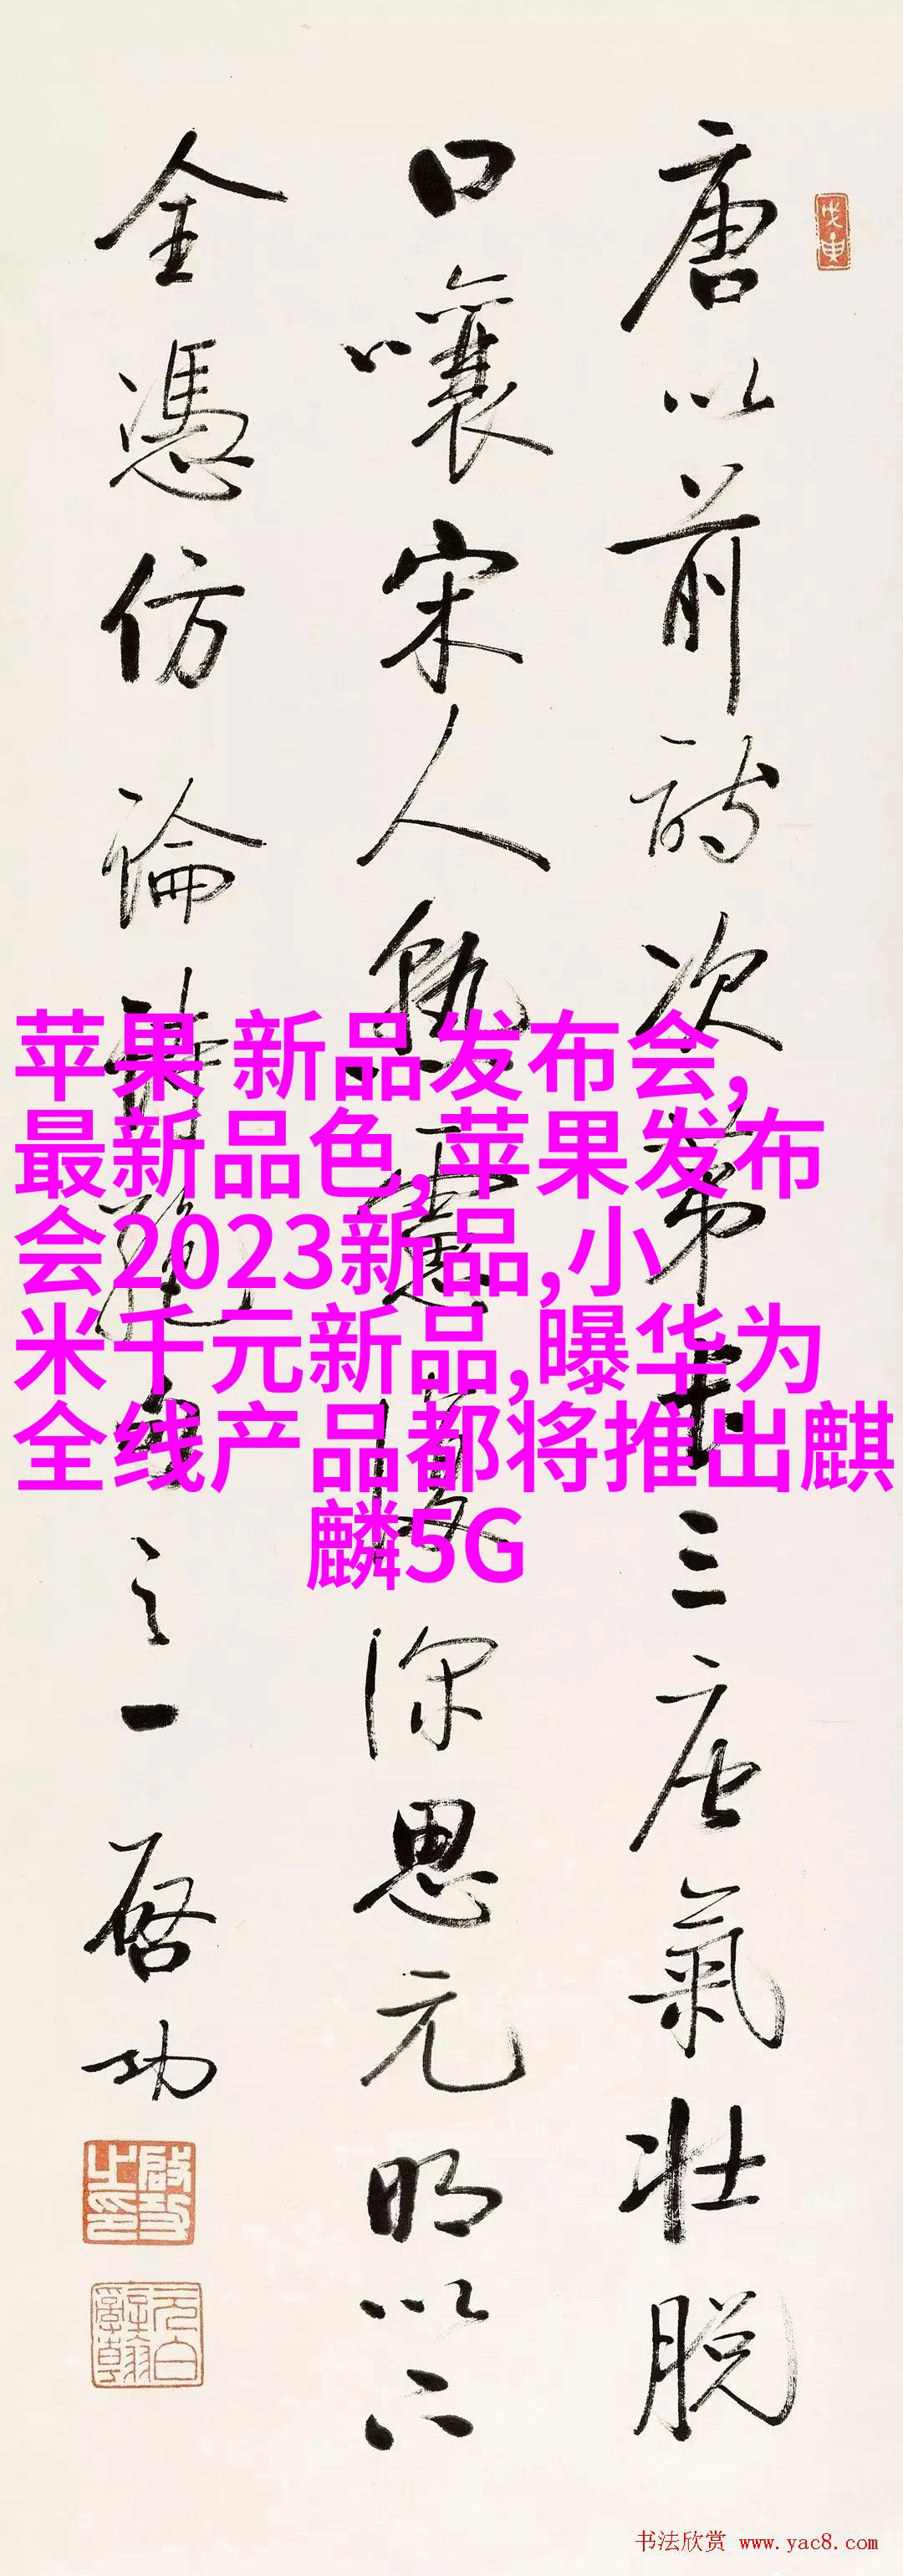 唐以前詩次第長三唐氣壯脫
口嚷宋人熟慮復深思元明以下
全憑仿 論詩絕句之一 启功
苹果 新品发布会,
最新品色,苹果发布
会2023新品,小
米千元新品,曝华为
全线产品都将推出麒
麟5G
啟功之印
书法欣赏 www.yac8.com